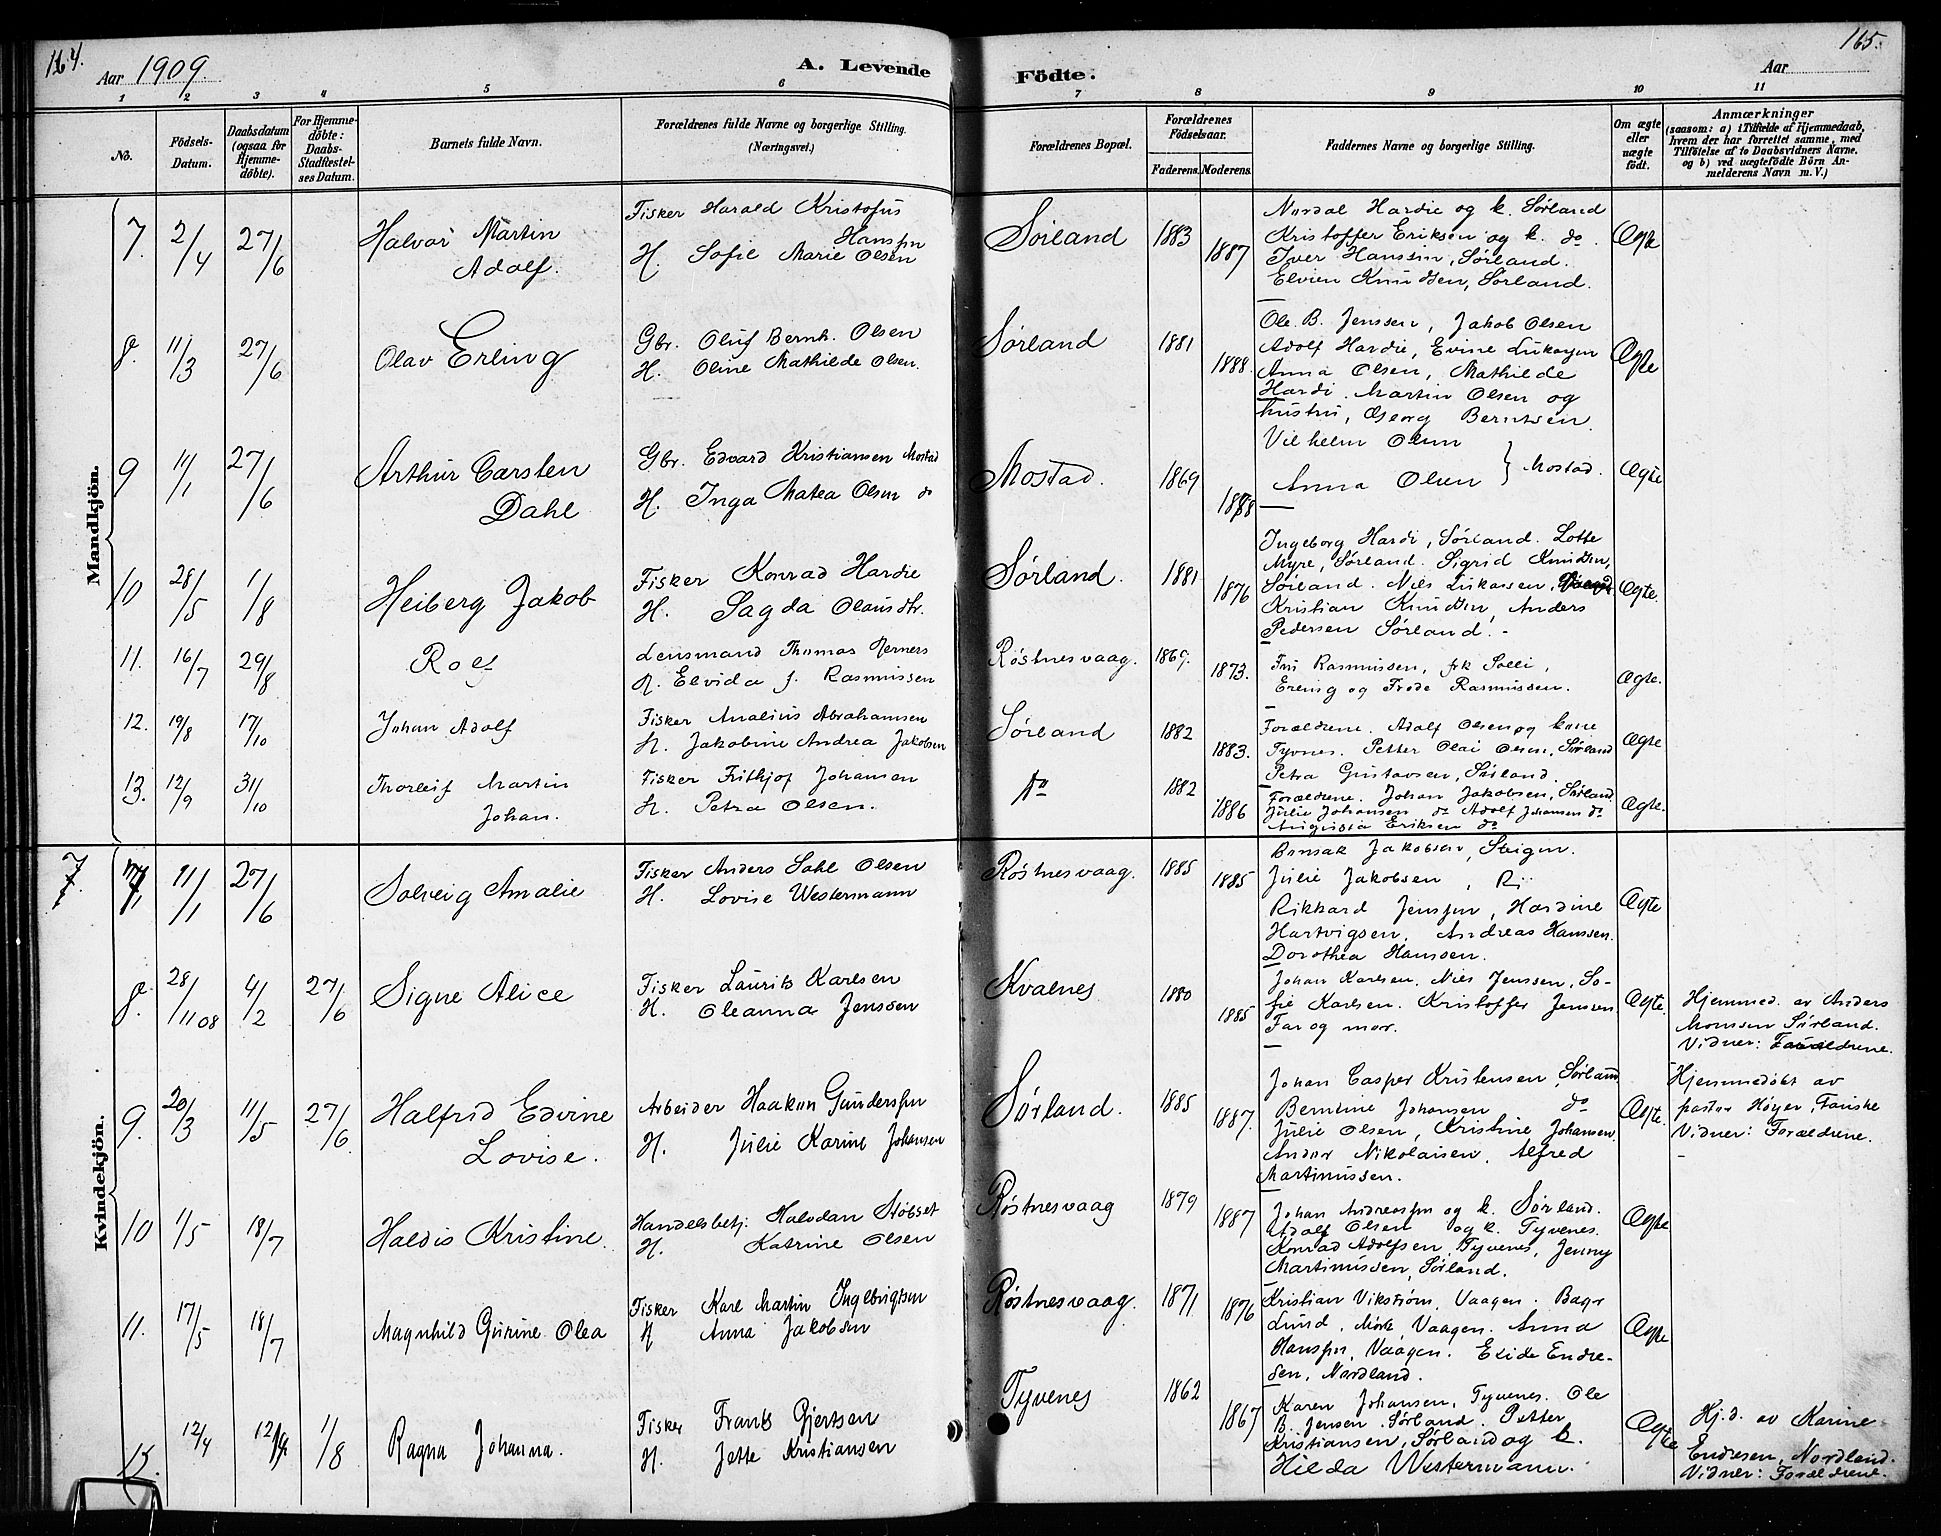 164.
165.
Aar 1909.
A. Levende
Födte.
Aar
1 2 3 4 5 6 7 8 9 10 11
No.
Födsels-Datum.
Daabsdatum (ogsaa for Hjemme-döbte).
For Hjemme-döbte: Daabs-Stadfæstel-ses Datum.
Barnets fulde Navn.
Forældrenes fulde Navne og borgerlige Stilling. (Næringsvei.)
Forældrenes Bopæl.
Forældrenes Födselsaar.
Faderens. Moderens.
Faddernes Navne og borgerlige Stilling.
Om ægte eller uægte födt.
Anmærkninger
(saasom: a) i Tilfælde af Hjemmedaab,
hvem der har forrettet samme, med
Tilföielse af to Daabsvidners Navne,
og b) ved uægtefödte Börn An-
melderens Navn m. V.)
Mandkjön.
7. 2/4 27/6 Halvar Martin Adolf.
Fisker Harald Kristofus Hanssen
H. Sofie Marie Olsen
Sørland 1883 1887
Nordal Hardie og k. Sørland
Kristoffer Eriksen og k. do.
Iver Hanssen, Sørland.
Elvien Knudsen, Sørland.
Ægte
8. 11/3 27/6 Olav Erling
Gbr. Oluf Bernh. Olsen
H. Oline Mathilde Olsen.
Sørland 1881 1888.
Ole. B. Jenssen, Jakob Olsen
Adolf Hardie, Evine Lukasen
Anna Olsen, Mathilde
Hardi. Martin Olsen og
hustru, Georg Berntsen
Ægte
9 11/1 27/6 Arthur Carsten Dahl
Gbr. Edvard Kristiansen Mostad
H. Inga Matea Olsen do
Mostad. 1869 1888
Vilhelm Olsen
Anna Olsen } Mostad.
Ægte
10 28/5 1/8 Heiberg Jakob
Fisker Konrad Hardie
H. Sagda Olausdtr.
Sørland. 1881 1876
Ingeborg Hardi, Sørland. Lotte
Myre, Sørland. Sigrid Knudsen,
Sørland. Nils Lukassen,
Kristian Knudsen, Anders
Pedersen Sørland. -
Ægte.
11. 16/7 29/8 Rolf
Lensmand Thomas Rerners
H. Elvida f. Rasmussen
Røstnesvaag. 1869. 1873.
Fru Rasmussen, frk Solli,
Erling og Frode Rasmussen.
Ægte.
12. 19/8 17/10 Johan Adolf
Fisker Analius Abrahamsen
H. Jakobine Andrea Jakobsen
Sørland 1882 1883.
Forældrene. Adolf Olsen og kone
Tyvnes. Petter Olai Olsen, Sørland
Petra Gustavsen, Sørland.
Ægte
13. 12/9 31/10 Thorleif Martin Johan.
Fisker Frithjof Johansen
H. Petra Olsen.
do 1882 1886
Forældrene. Johan Jakobsen, Sørland
Julie Johansen do Adolf Johansen do
Augusta Eriksen do
Ægte.
Kvindekjön.
7. 11/1 27/6 Solveig Amalie
Fisker Anders Dahl Olsen
H. Lovise Westermann
Røstnesvaag. 1885 1885
Bonsak Jakobsen, Steigen.
Julie Jakobsen,
Rikkard Jenssen, Hardine
Hartvigsen, Andreas Hanssen.
Dorothea Hanssen.
Ægte
8. 28/11 08 4/2 27/6 Signe Alice
Fisker Laurits Karlsen
H. Oleanna Jenssen
Kvalnes 1880 1885
Johan Karlsen. Nils Jenssen, So-
fie Karlsen. Kristoffer Jenssen
Far og mor.
Ægte.
Hjemmed. av Anders
Monsen Sørland.
Vidner: Forældrene.
9. 20/3 11/5 27/6 Halfrid Edvine Lovise.
Arbeider Haakon Gunderssen
H. Julie Karine Johansen
Sørland. 1885 1887.
Johan Casper Kristensen, Sørland
Berntine Johansen do
Julie Olsen, Kristine Johansen
Andor Nikolaisen, Alfred
Martinussen.
Ægte.
Hjemmedøbt av
pastor Høyer, Fauske
Vidner: Forældrene.
10 1/5 18/7 Haldis Kristine.
Handelsbetj. Halvdan Støbset
H. Katrine Olsen
Røstnesvaag 1879 1887
Johan Andreassen og k. Sørland.
Adolf Olsen og k. Tyvenes.
Konrad Adolfsen, Tyvenes, Jenny
Martinussen, Sørland.
Ægte
11. 17/5 18/7 Magnhild Gurine Olea
Fisker Karl Martin Ingebrigtsen
H Anna Jakobsen
Røstnesvaag. 1871 1876
Kristian Vikstrøm, Vaagen. Bagr
Lund, Mørk, Vaagen. Anna
Hanssen, Vaagen. Elide Endre-
sen, Nordland.
Ægte
15. 12/4 12/4 1/8 Ragna Johanna.
Fisker Frants Gjertsen
H. Jette Kristiansen
Tyvenes 1862 1867
Karen Johansen, Tyvenes. Ole
B. Jensen, Sørland. Petter
Kristiansen, Sørland og k.
Hilda Westermann.
Ægte
Hj.d. av Karine
Endresen, Nordland.
Vidner: Forældrene.